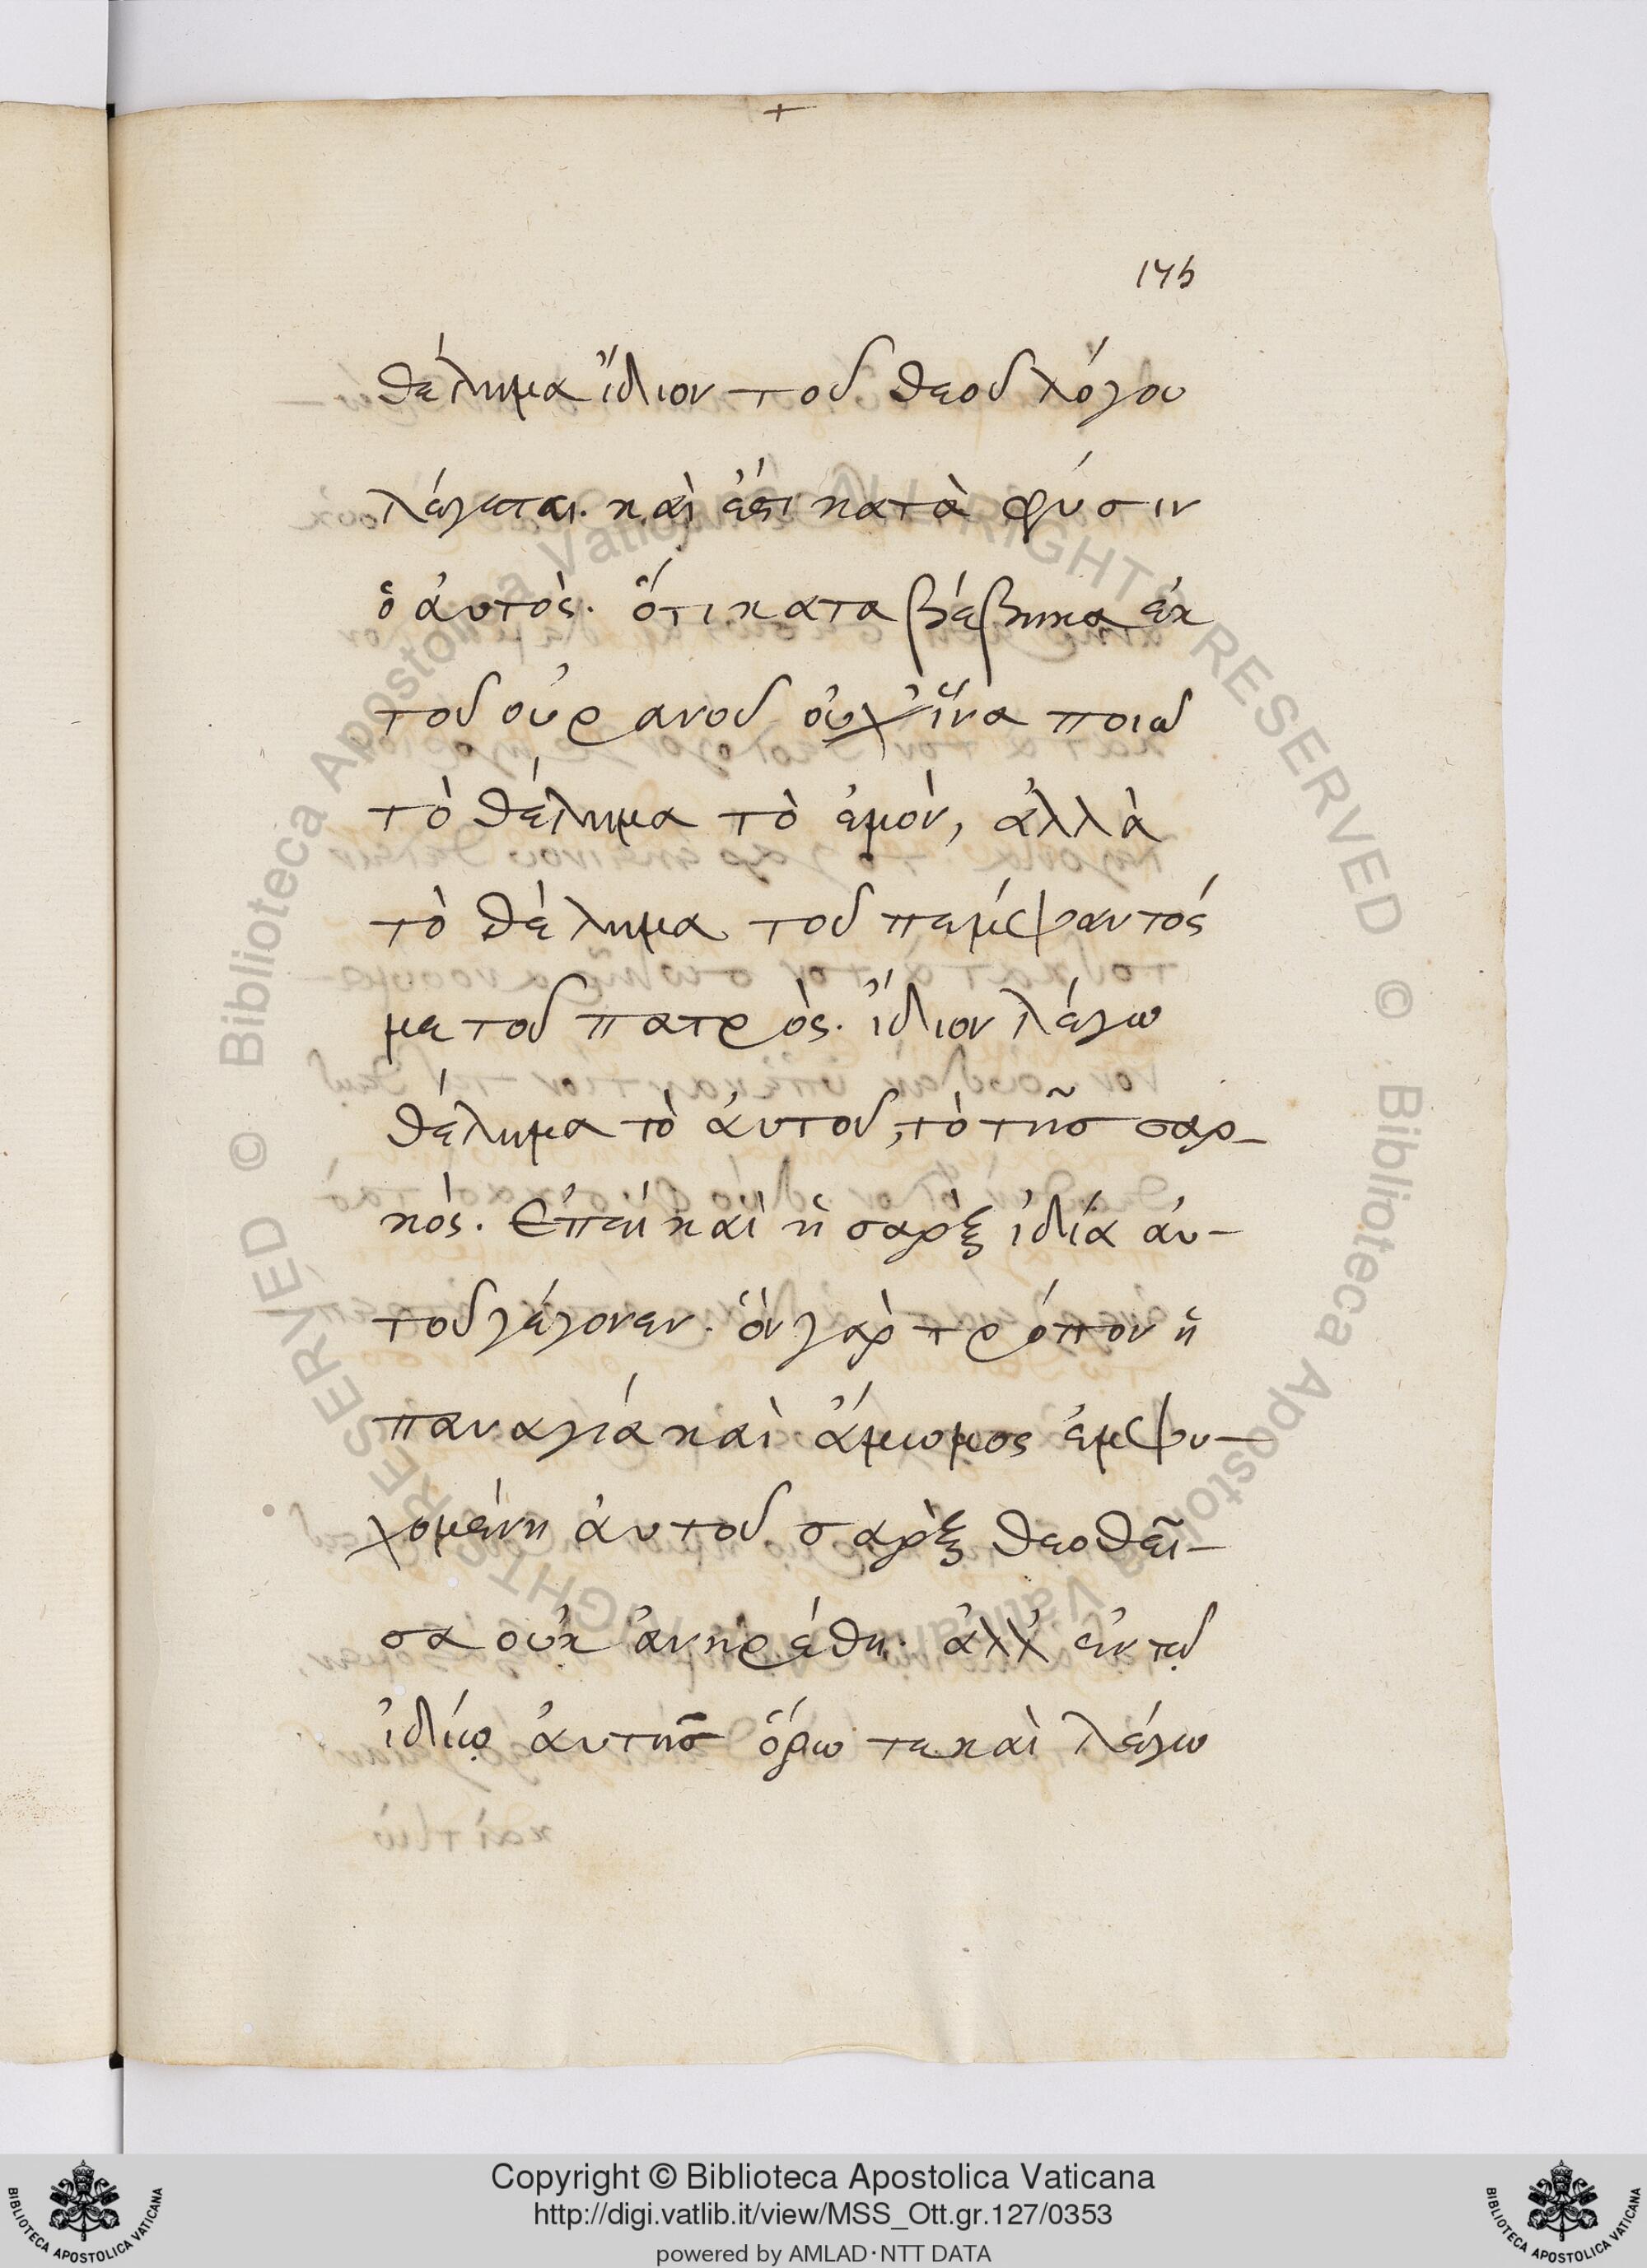 +
175
θέλημα ἴδιον τοῦ θεοῦ λόγου
λέγεται. καὶ ἔστι κατὰ φύσιν
ὁ ἀυτὸς. ὅτι καταβέβηκα ἐκ
τοῦ οὐρανοῦ οὐχ ἵνα ποιῶ
τὸ θέλημα τὸ ἐμὸν, ἀλλὰ
τὸ θέλημα τοῦ πέμψαντός
με τοῦ πατρὸς. ἴδιον λέγω
θέλημα τὸ ἀυτοῦ, τὸ τῆσ σαρ-
κός. Ἐπεὶ καὶ ἡ σαρξ ἰδία ἀυ-
τοῦ γέγονεν. ὃν γαρ τρόπον ἡ
παναγία καὶ ἄμωμος ἐμψυ-
χομένη ἀυτοῦ σαρξ θεοθεῖ-
σα οὐκ ἀνηρέθη. ἀλλ' ἐν τῷ
ἰδίῳ ἀυτῆσ ὅρω τε καὶ λέγω
Copyright © Biblioteca Apostolica Vaticana
http://digi.vatlib.it/view/MSS_Ott.gr.127/0353
powered by AMLAD·NTT DATA
BIBLIOTECA APOSTOLICA VATICANA
BIBLIOTECA APOSTOLICA VATICANA